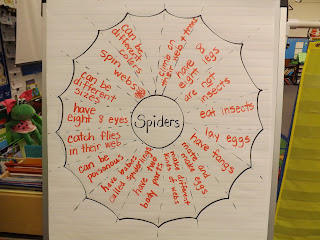 Spiders
climb on
their web + trees
have 8
eight legs
are not
insects
eat insects
lay eggs
have fangs
mate and
make eggs
make different
kinds of webs
have two
body parts
have babies
called spiderlings
can be
poisonous
catch flies
in their web
have
eight 8 eyes
can be
different
sizes
spin webs
can be
different
colors